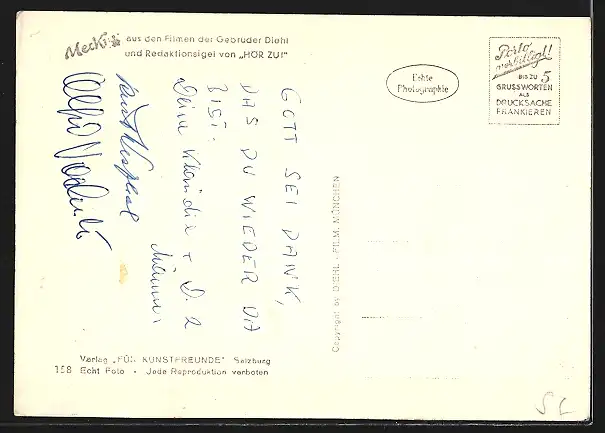 Mecki aus den Filmen der Gebrüder Diehl
und Redaktionsigel von „HÖR ZU!"
Echte
Photographie
Porto
BIS ZU 5
GRUSSWORTEN
ALS
DRUCKSACHE
FRANKIEREN
GOTT SEI DANK,
DAS DU WIEDER DA
BIST.
Deine Klaudia + D. 2
Männer
Copyright by DIEHL-FILM, MÜNCHEN
Verlag „FÜR KUNSTFREUNDE" Salzburg
158 Echt Foto - Jede Reproduktion verboten
SL